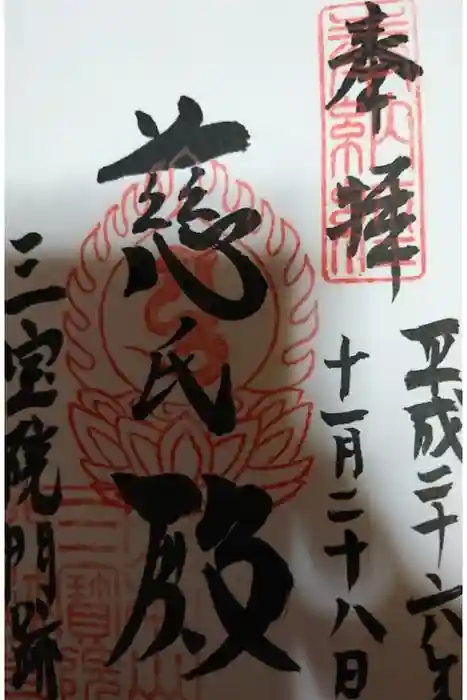 奉拝
平成二十六年
十一月二十八日
慈氏殿
三宝院門跡